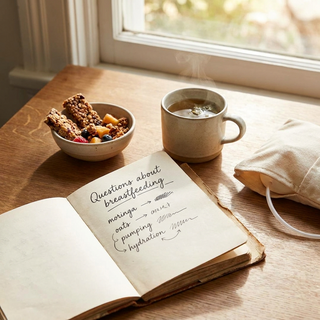 Questions about
breastfeeding
moringa →
oats →
pumping
hydration